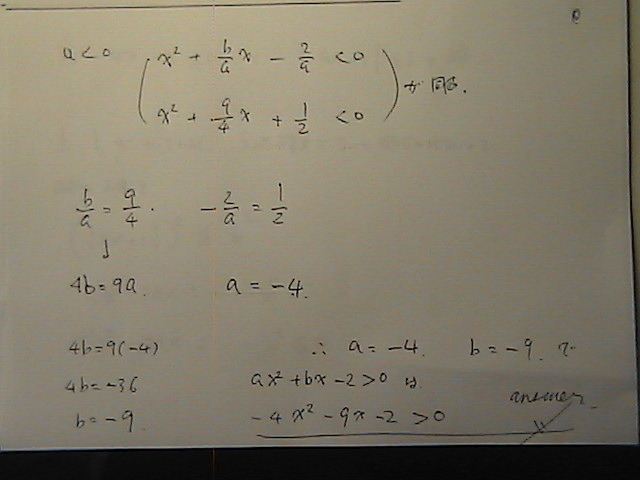 a < 0 ( x² + b/a x - 2/a < 0
x² + 9/4 x + 1/2 < 0 ) が 同じ.
b/a = 9/4. - 2/a = 1/2
↓
4b = 9a. a = -4.
4b = 9(-4) ∴ a = -4. b = -9. で
4b = -36 ax² + bx - 2 > 0 は
b = -9. -4x² - 9x - 2 > 0 answer